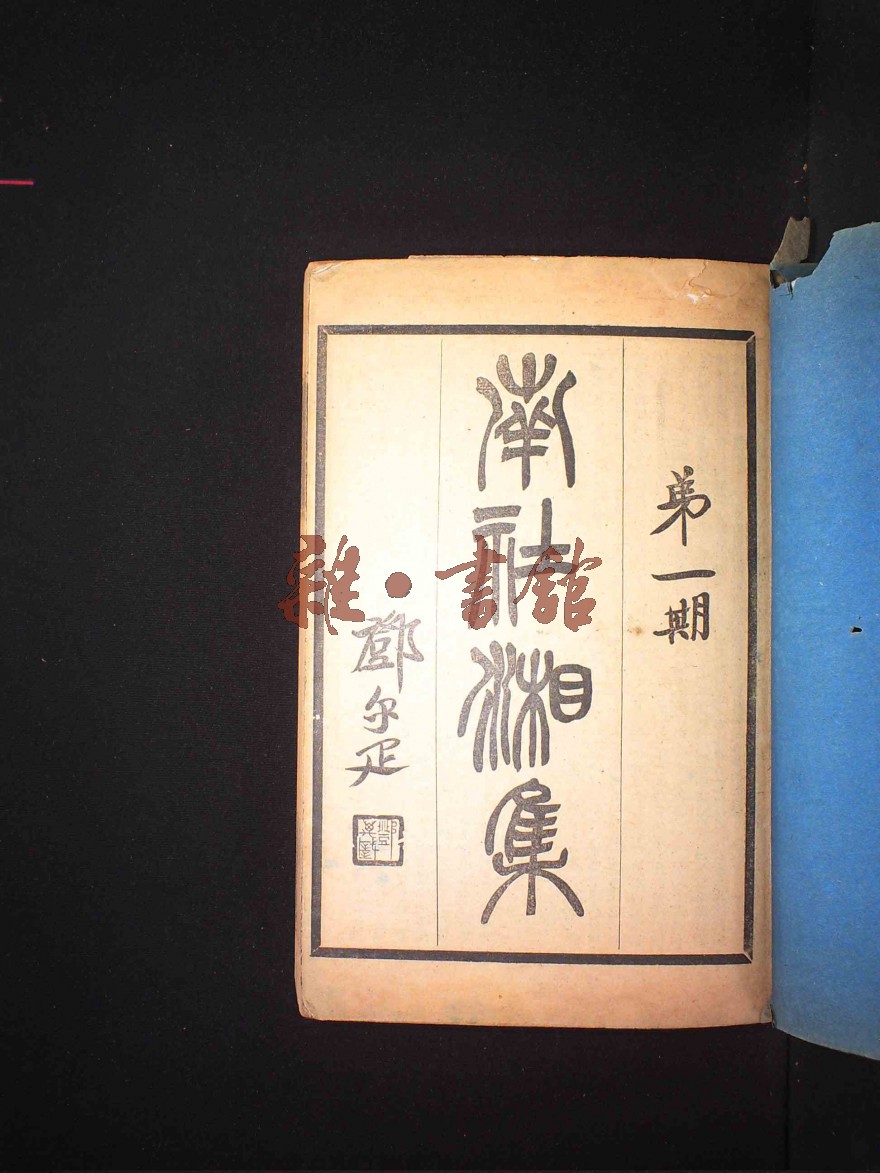 弟一期
南社湘集
鄧尔疋
雜·書館